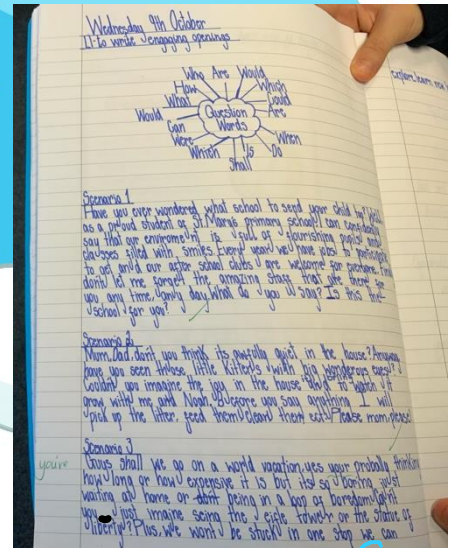 Wednesday 9th October
LI-to write engaging openings
Who Are Would
How Which
What Could
Would Question Are
Can Words
Were When
Which Is Do
Shall
explore, learn new
Scenario 1
Have you ever wondered what school to send your child to? Well
as a proud student of St.Marys primary school I can confidently
say that our enviroment is full of flourishing pupils and
classes filled with smiles. Every year we have jobs to participate
to get and our after school clubs are welcome for
dont let me forget the amazing staff that are there for
you any time, any day. What do you say? Is this the
school for you?
Scenario 2
Mum, Dad, don't you think its awfully quiet in the house? Anyway
have you seen those little kittens with big wonderous eyes?
Couldnt you imagine the joy in the house to watch it
grow with me and Noah. Before you say anything I will
pick up the litter, feed them, clean them ect. Please mom, please!
Scenario 3
you're
Guys shall we go on a world vacation, yes your probably thinking
how long or how expensive it is but its so boring just
waiting at home or being in a loop of boredom. Cant
you just imaine seing the eifle tower or the statue of
liberty? Plus, we wont be stuck in one stop we can